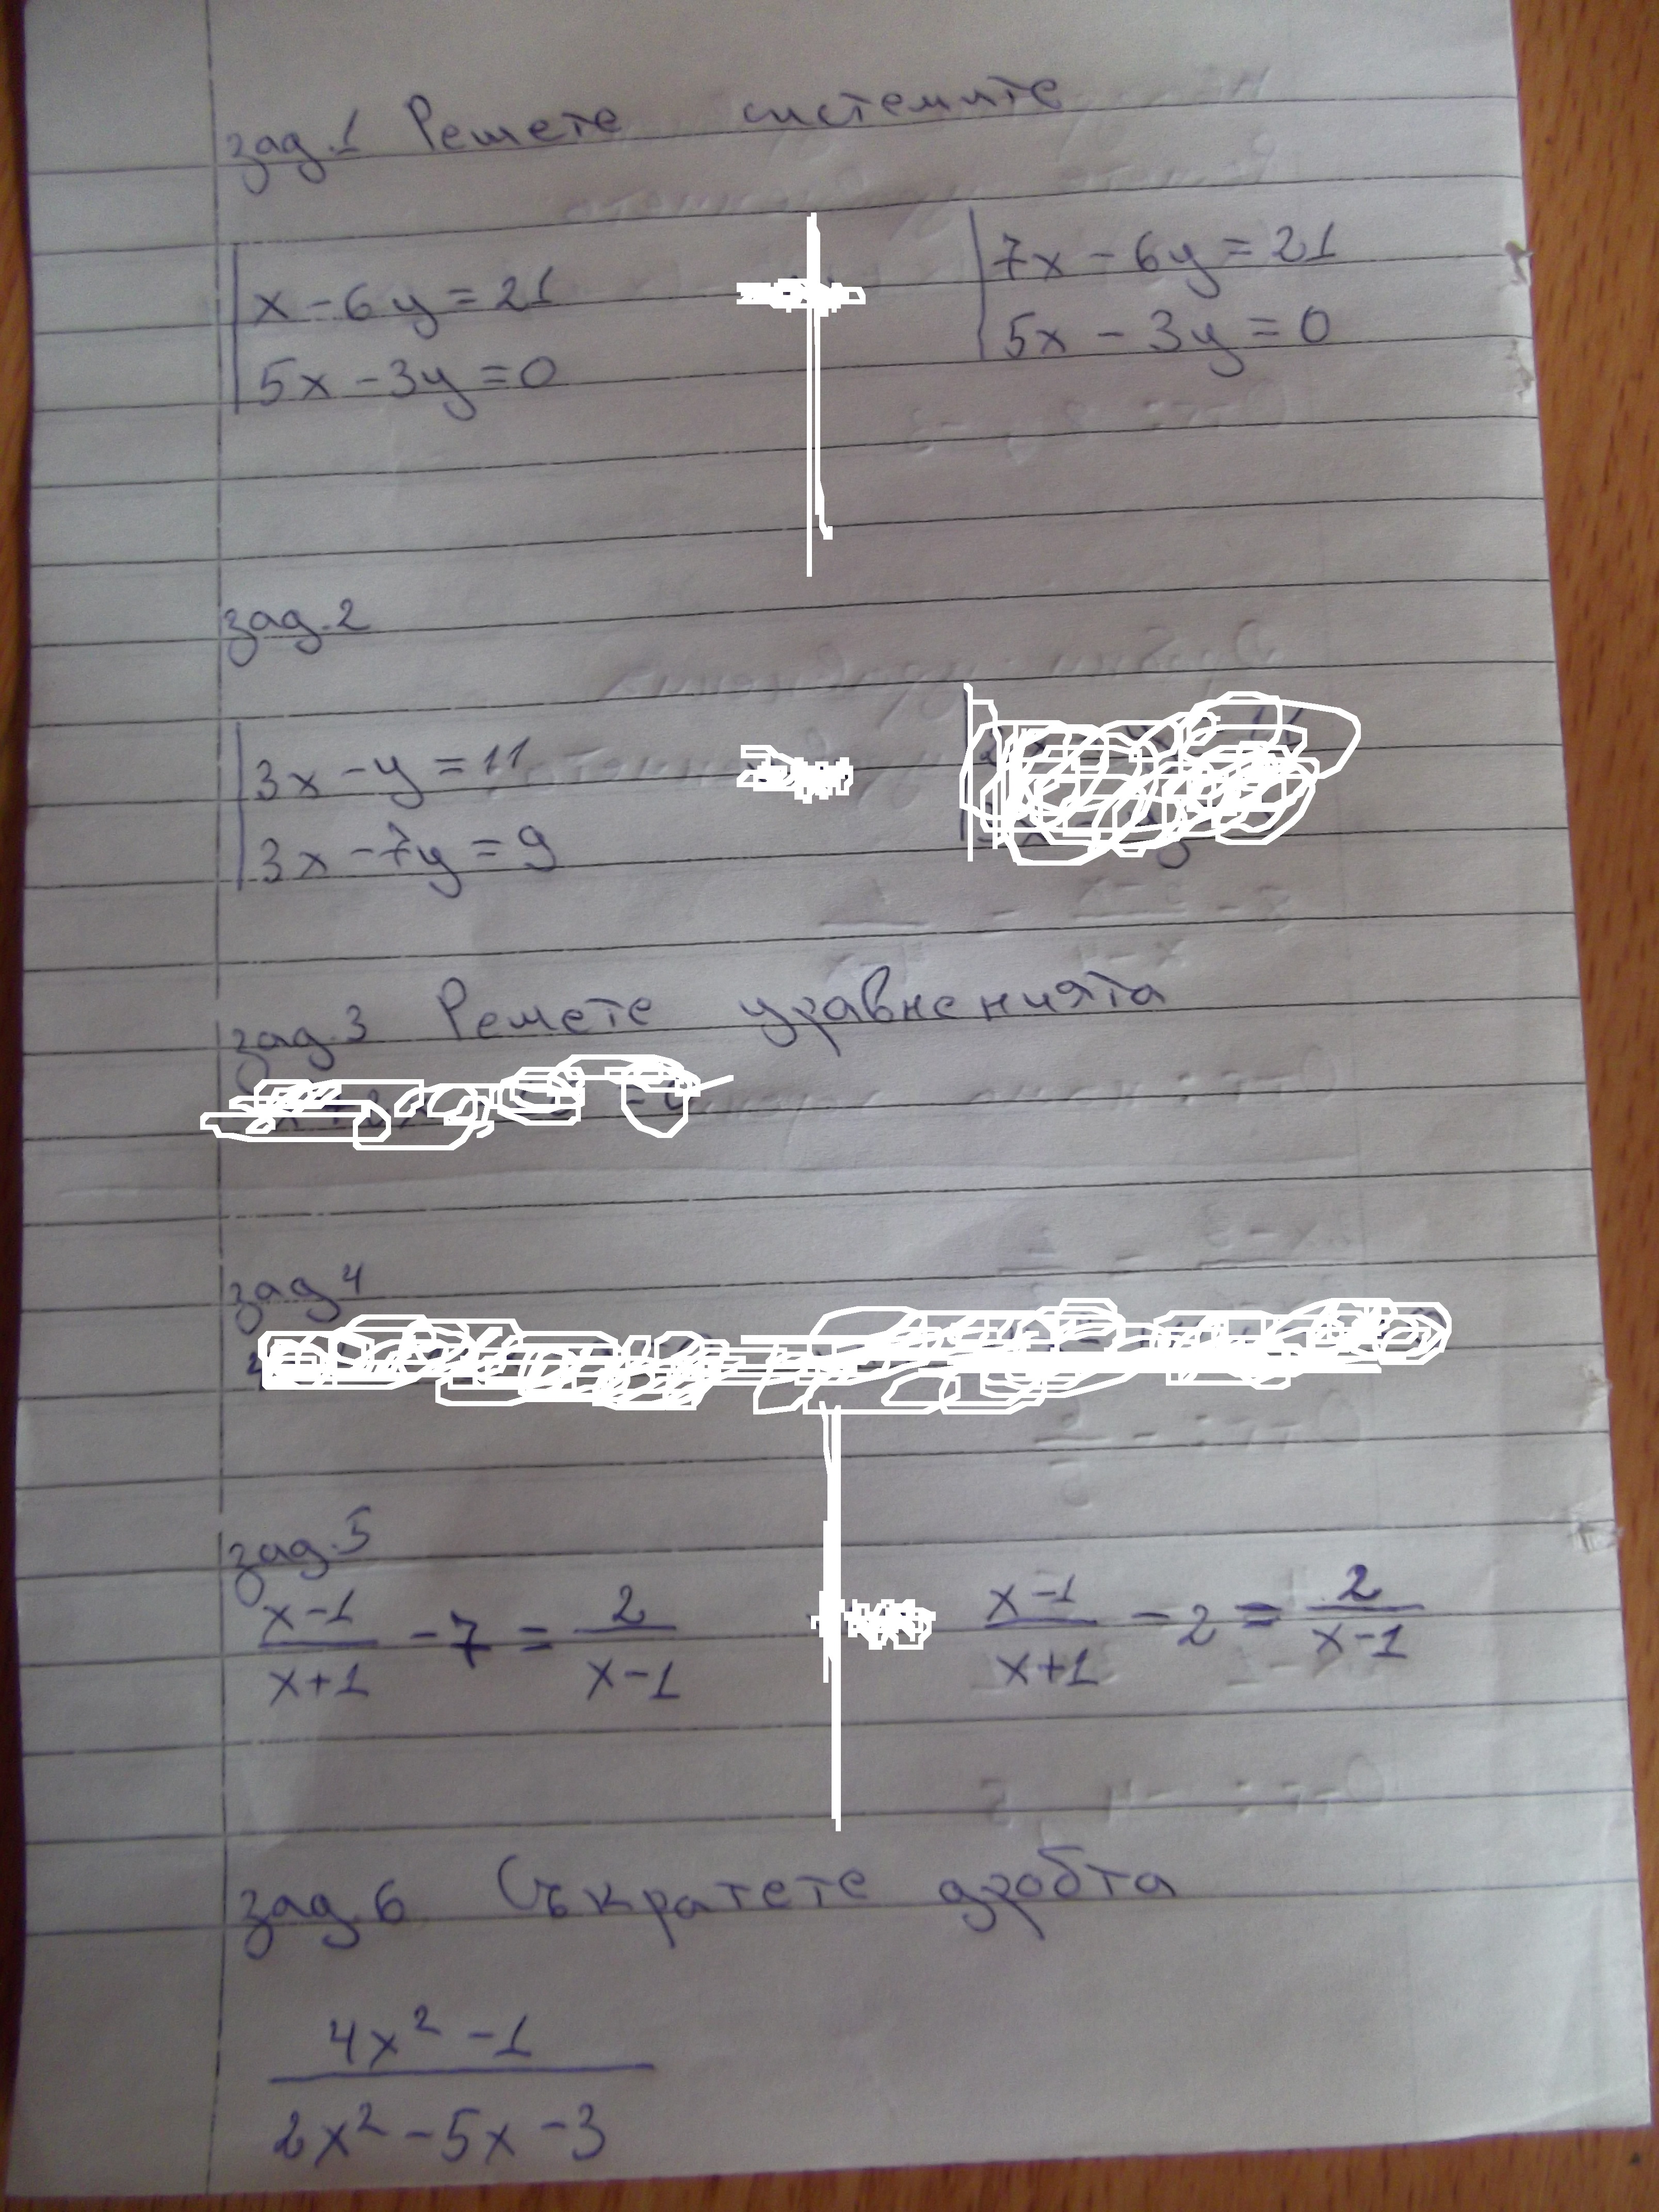 зад.1 Решете системите
x - 6y = 21
5x - 3y = 0
7x - 6y = 21
5x - 3y = 0
зад.2
3x - y = 11
3x - 7y = 9
зад.3 Решете уравненията
зад 4
зад.5
x-1/x+1 - 7 = 2/x-1
x-1/x+1 - 2 = 2/x-1
зад.6 Съкратете дробта
4x² - 1
2x² - 5x - 3